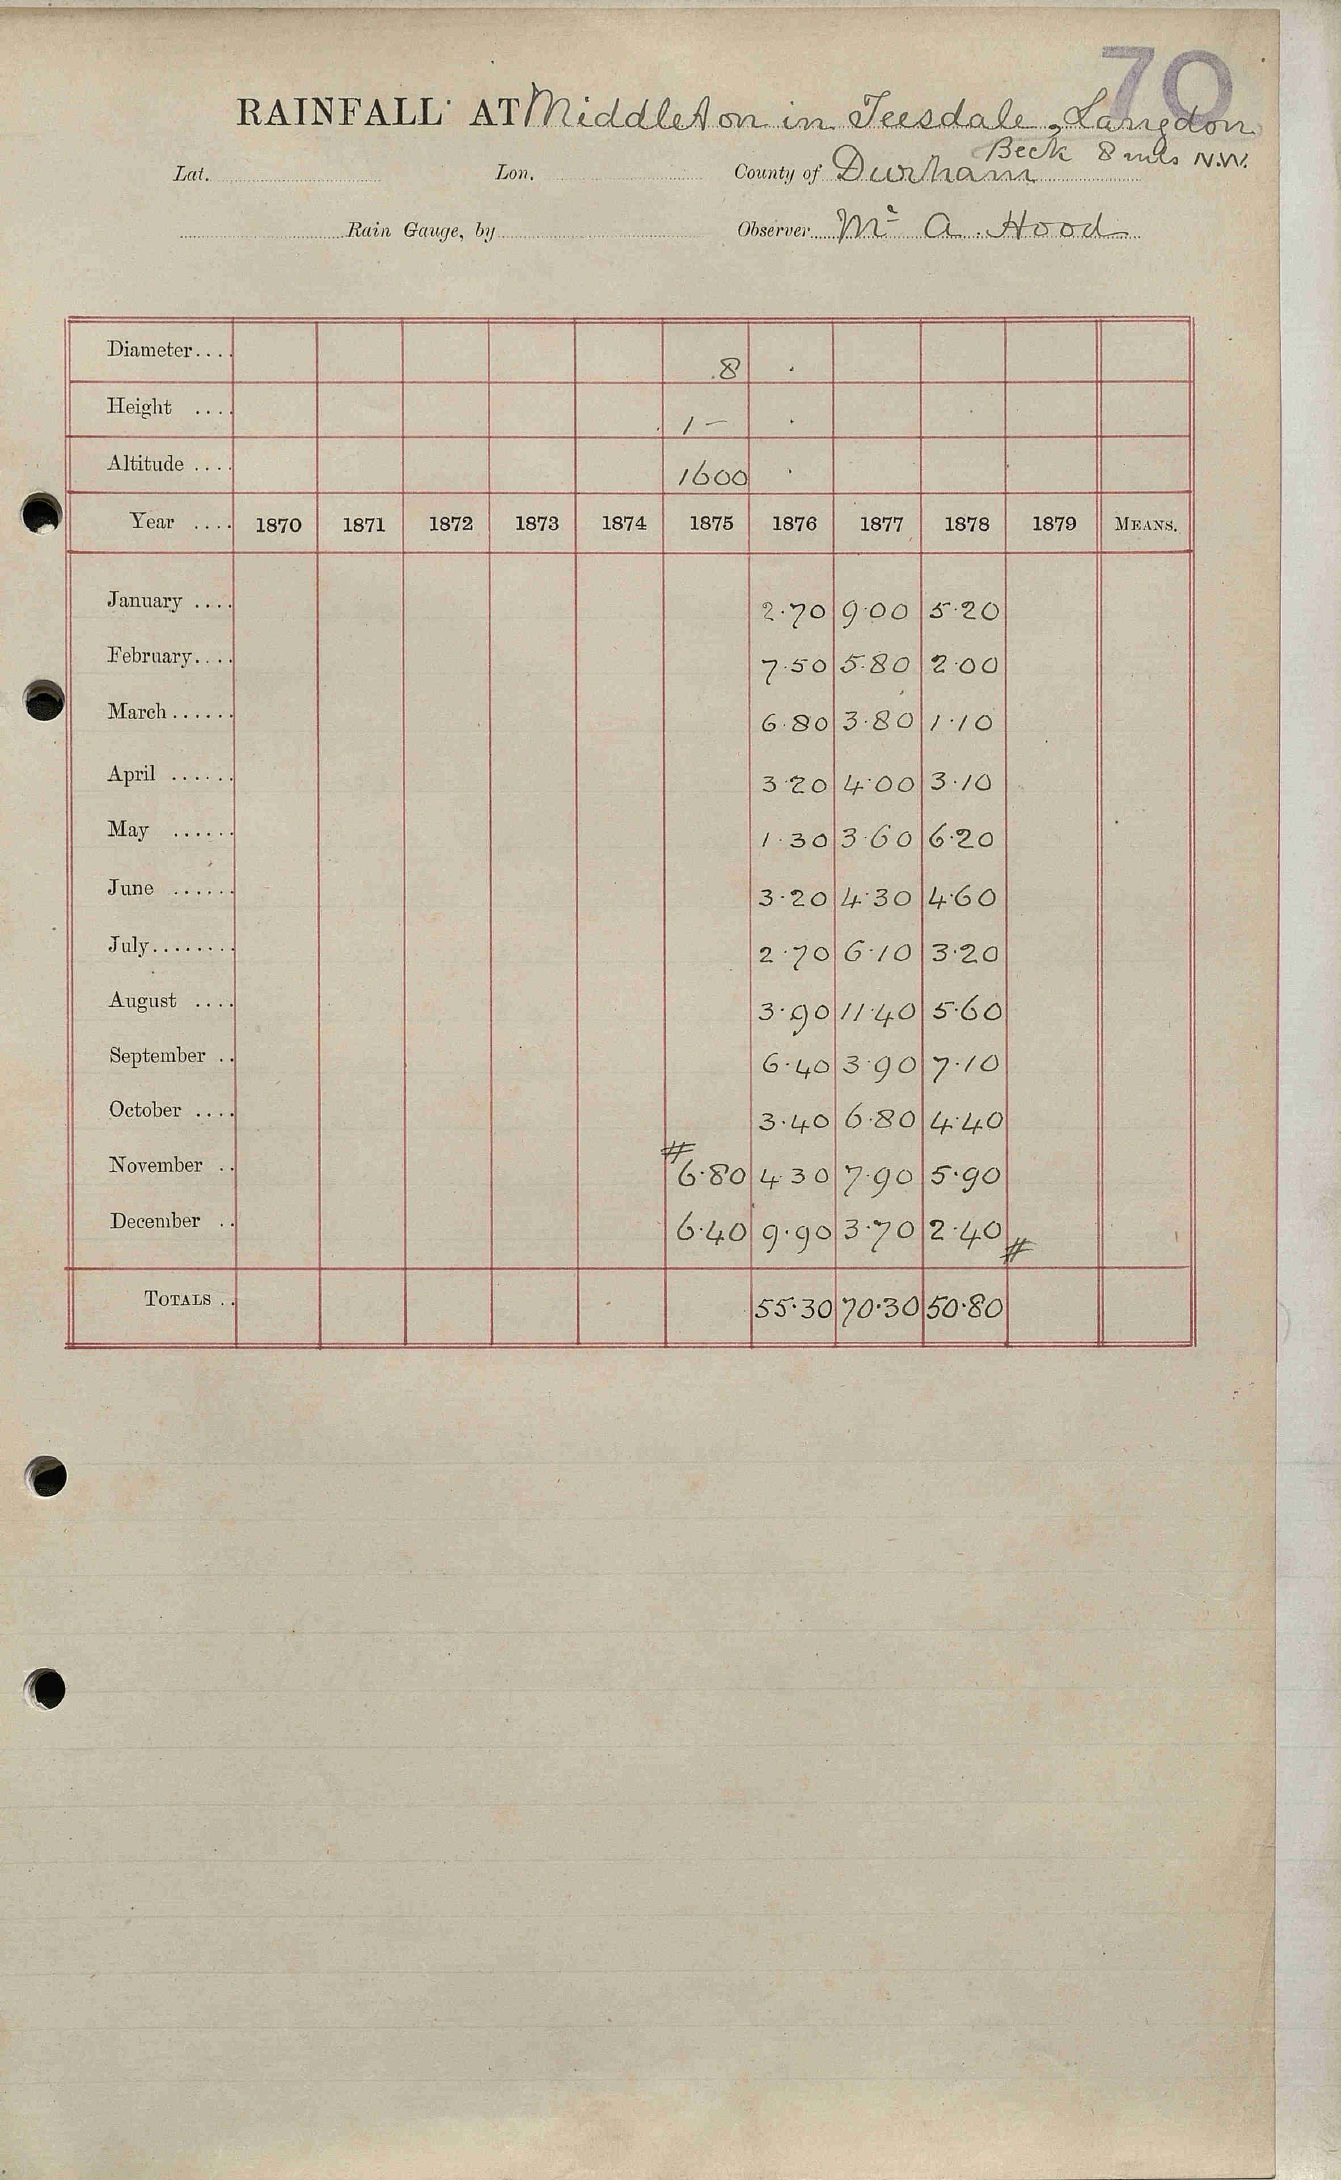 70
RAINFALL AT Middleton in Teesdale, Langdon
Beck 8 mls N.W.
Lat. Lon. County of Durham
Rain Gauge, by Observer Mr A. Hood
Diameter.... 8
Height .... 1-
Altitude .... 1600
Year .... 1870 1871 1872 1873 1874 1875 1876 1877 1878 1879 MEANS.
January .... 2.70 9.00 5.20
February.... 7.50 5.80 2.00
March...... 6.80 3.80 1.10
April ...... 3.20 4.00 3.10
May ...... 1.30 3.60 6.20
June ...... 3.20 4.30 4.60
July........ 2.70 6.10 3.20
August .... 3.90 11.40 5.60
September .. 6.40 3.90 7.10
October .... 3.40 6.80 4.40
November .. # 6.80 4.30 7.90 5.90
December .. 6.40 9.90 3.70 2.40 #
TOTALS .. 55.30 70.30 50.80